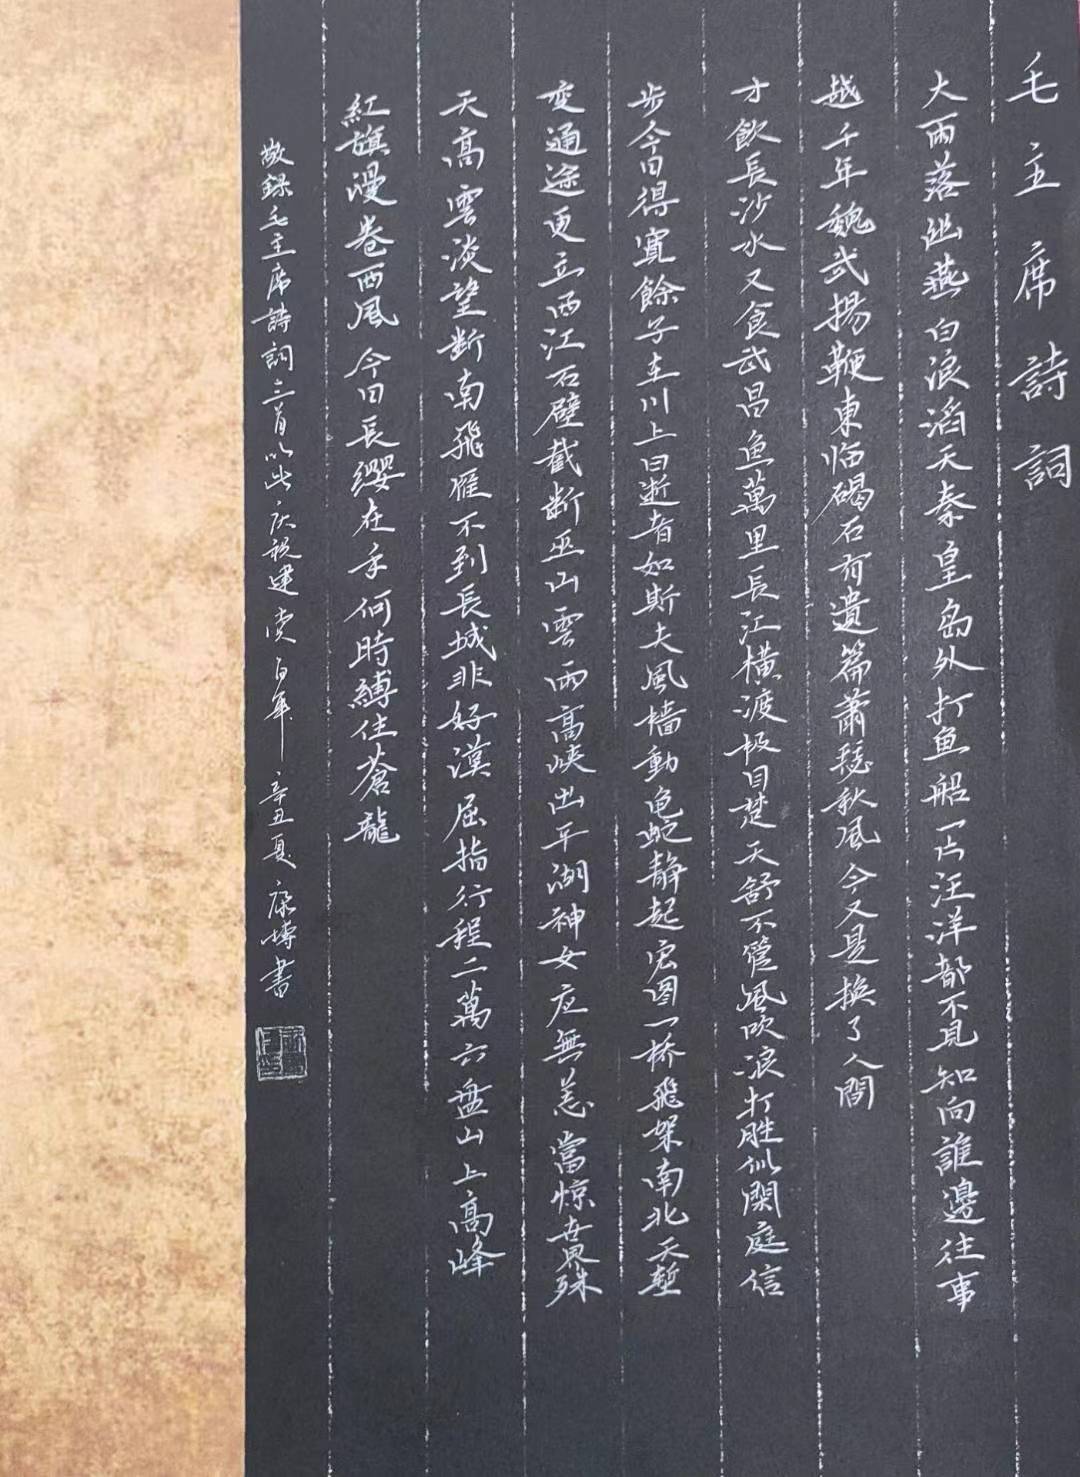 毛主席詩詞
大雨落幽燕白浪滔天秦皇島外打鱼船一片汪洋都不見知向誰邊往事
越千年魏武揚鞭東临碣石有遺篇蕭瑟秋風今又是換了人間
才飲長沙水又食武昌鱼萬里長江橫渡极目楚天舒不管風吹浪打胜似閑庭信
步今日得寬餘子在川上曰逝者如斯夫風檣動龟蛇静起宏图一桥飛架南北天塹
变通途更立西江石壁截断巫山雲雨高峡出平湖神女应無恙當惊世界殊
天高雲淡望断南飛雁不到長城非好漢屈指行程二萬六盘山上高峰
紅旗漫卷西風今日長纓在手何時縛住蒼龍
敬録毛主席詩詞三首以此庆祝建党百年辛丑夏康博書